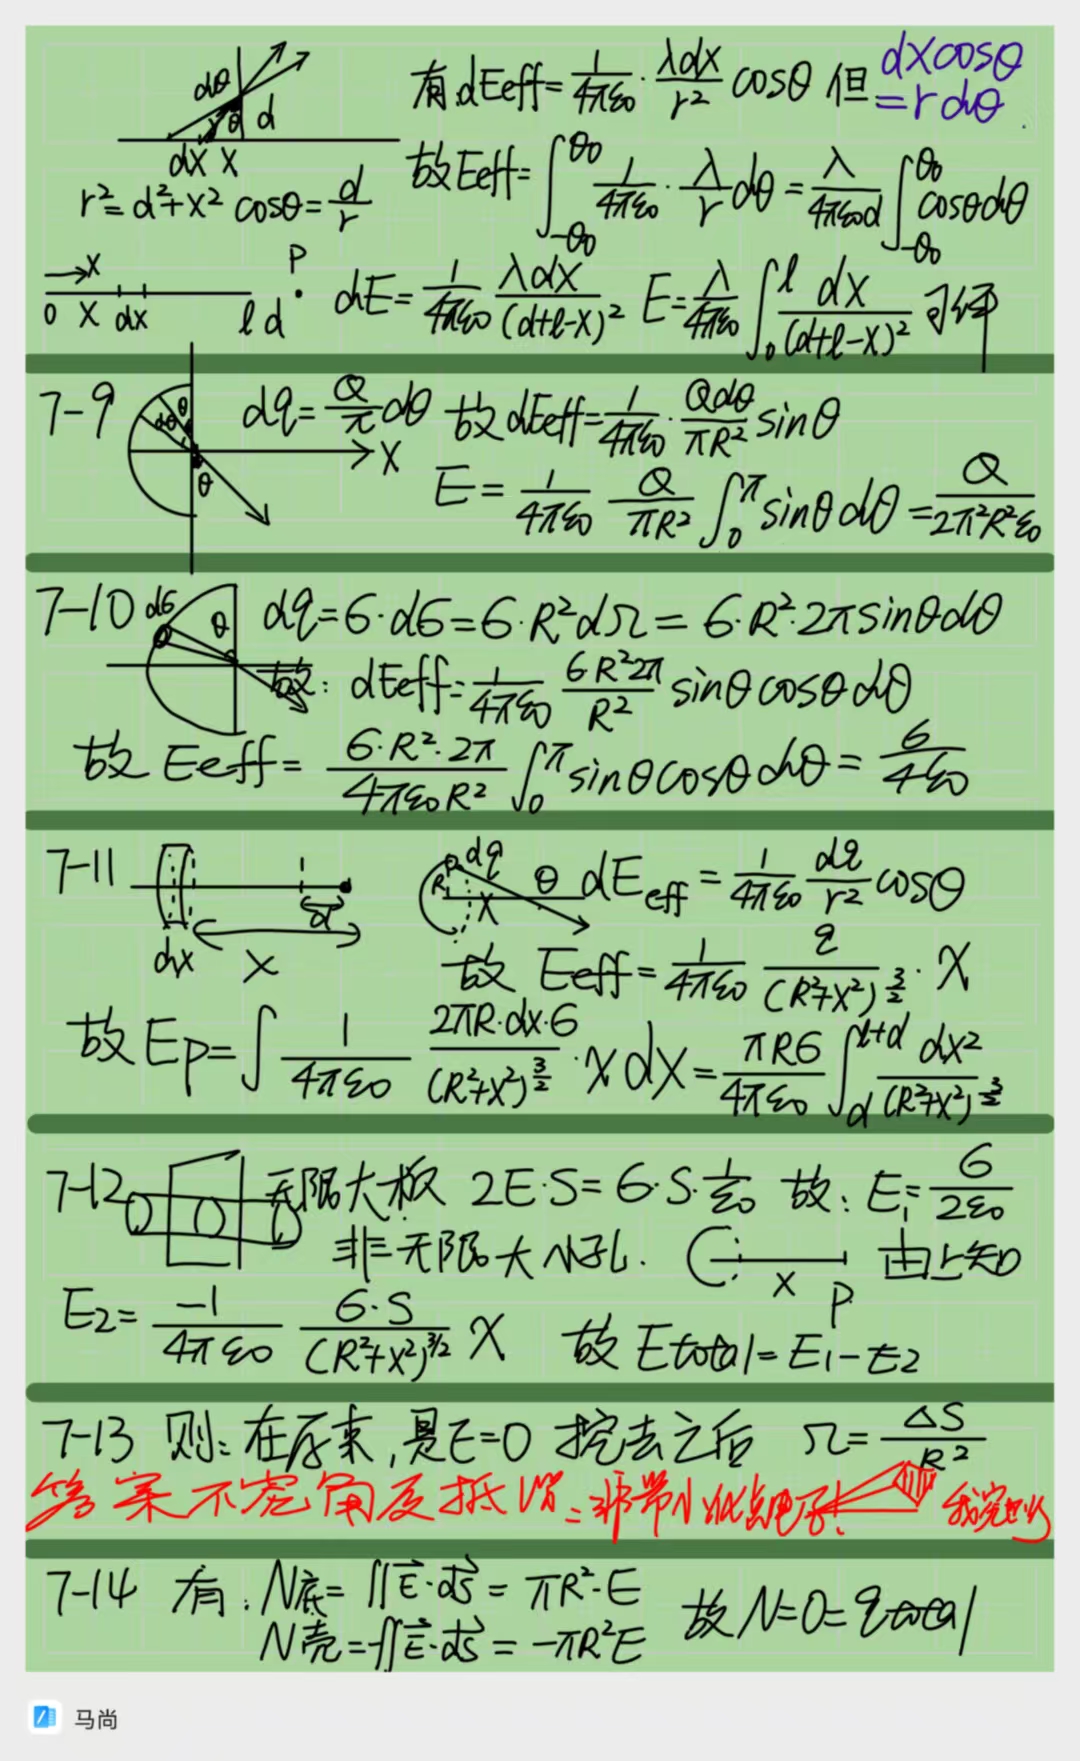 dθ θ d r 有 dEeff=1/4πε0·λdx/r² cosθ 但 dxcosθ
=rdθ
dx x 故Eeff=∫_{-θ0}^{θ0} 1/4πε0·λ/r dθ=λ/4πε0d ∫_{-θ0}^{θ0} cosθdθ
r²=d²+x² cosθ=d/r
x P
0 x dx l d dE=1/4πε0 λdx/(d+l-x)² E=λ/4πε0 ∫_0^l dx/(d+l-x)² 可得
7-9 θ dθ θ x dq=Q/π dθ 故dEeff=1/4πε0·Qdθ/πR² sinθ
E=1/4πε0 Q/πR² ∫_0^π sinθdθ=Q/2π²R²ε0
7-10 d6 θ dq=6·d6=6·R²dΩ=6·R²·2πsinθdθ
故: dEeff=1/4πε0 6R²2π/R² sinθcosθdθ
故 Eeff=6·R²·2π/4πε0R² ∫_0^π sinθcosθdθ=6/4ε0
7-11 dx x d dq R x θ dEeff=1/4πε0 dq/r² cosθ
故 Eeff=1/4πε0 q/(R²+x²)^{3/2}·x
故Ep=∫1/4πε0 2πR·dx·6/(R²+x²)^{3/2}·xdx=πR6/4πε0 ∫_d^{l+d} dx²/(R²+x²)^{3/2}
7-12 无限大板 2E·S=6·S·1/ε0 故: E1=6/2ε0
非无限大小孔. x P 由上知
E2=-1/4πε0 6·S/(R²+x²)^{3/2} x 故 Etotal=E1-E2
7-13 则: 在原来,是E=0 挖去之后 Ω=ΔS/R²
答案不宽角度抵
7-14 有: N底=∬E·dS=πR²·E 故N=0=qtotal
N壳=-∬E·dS=-πR²E
马尚